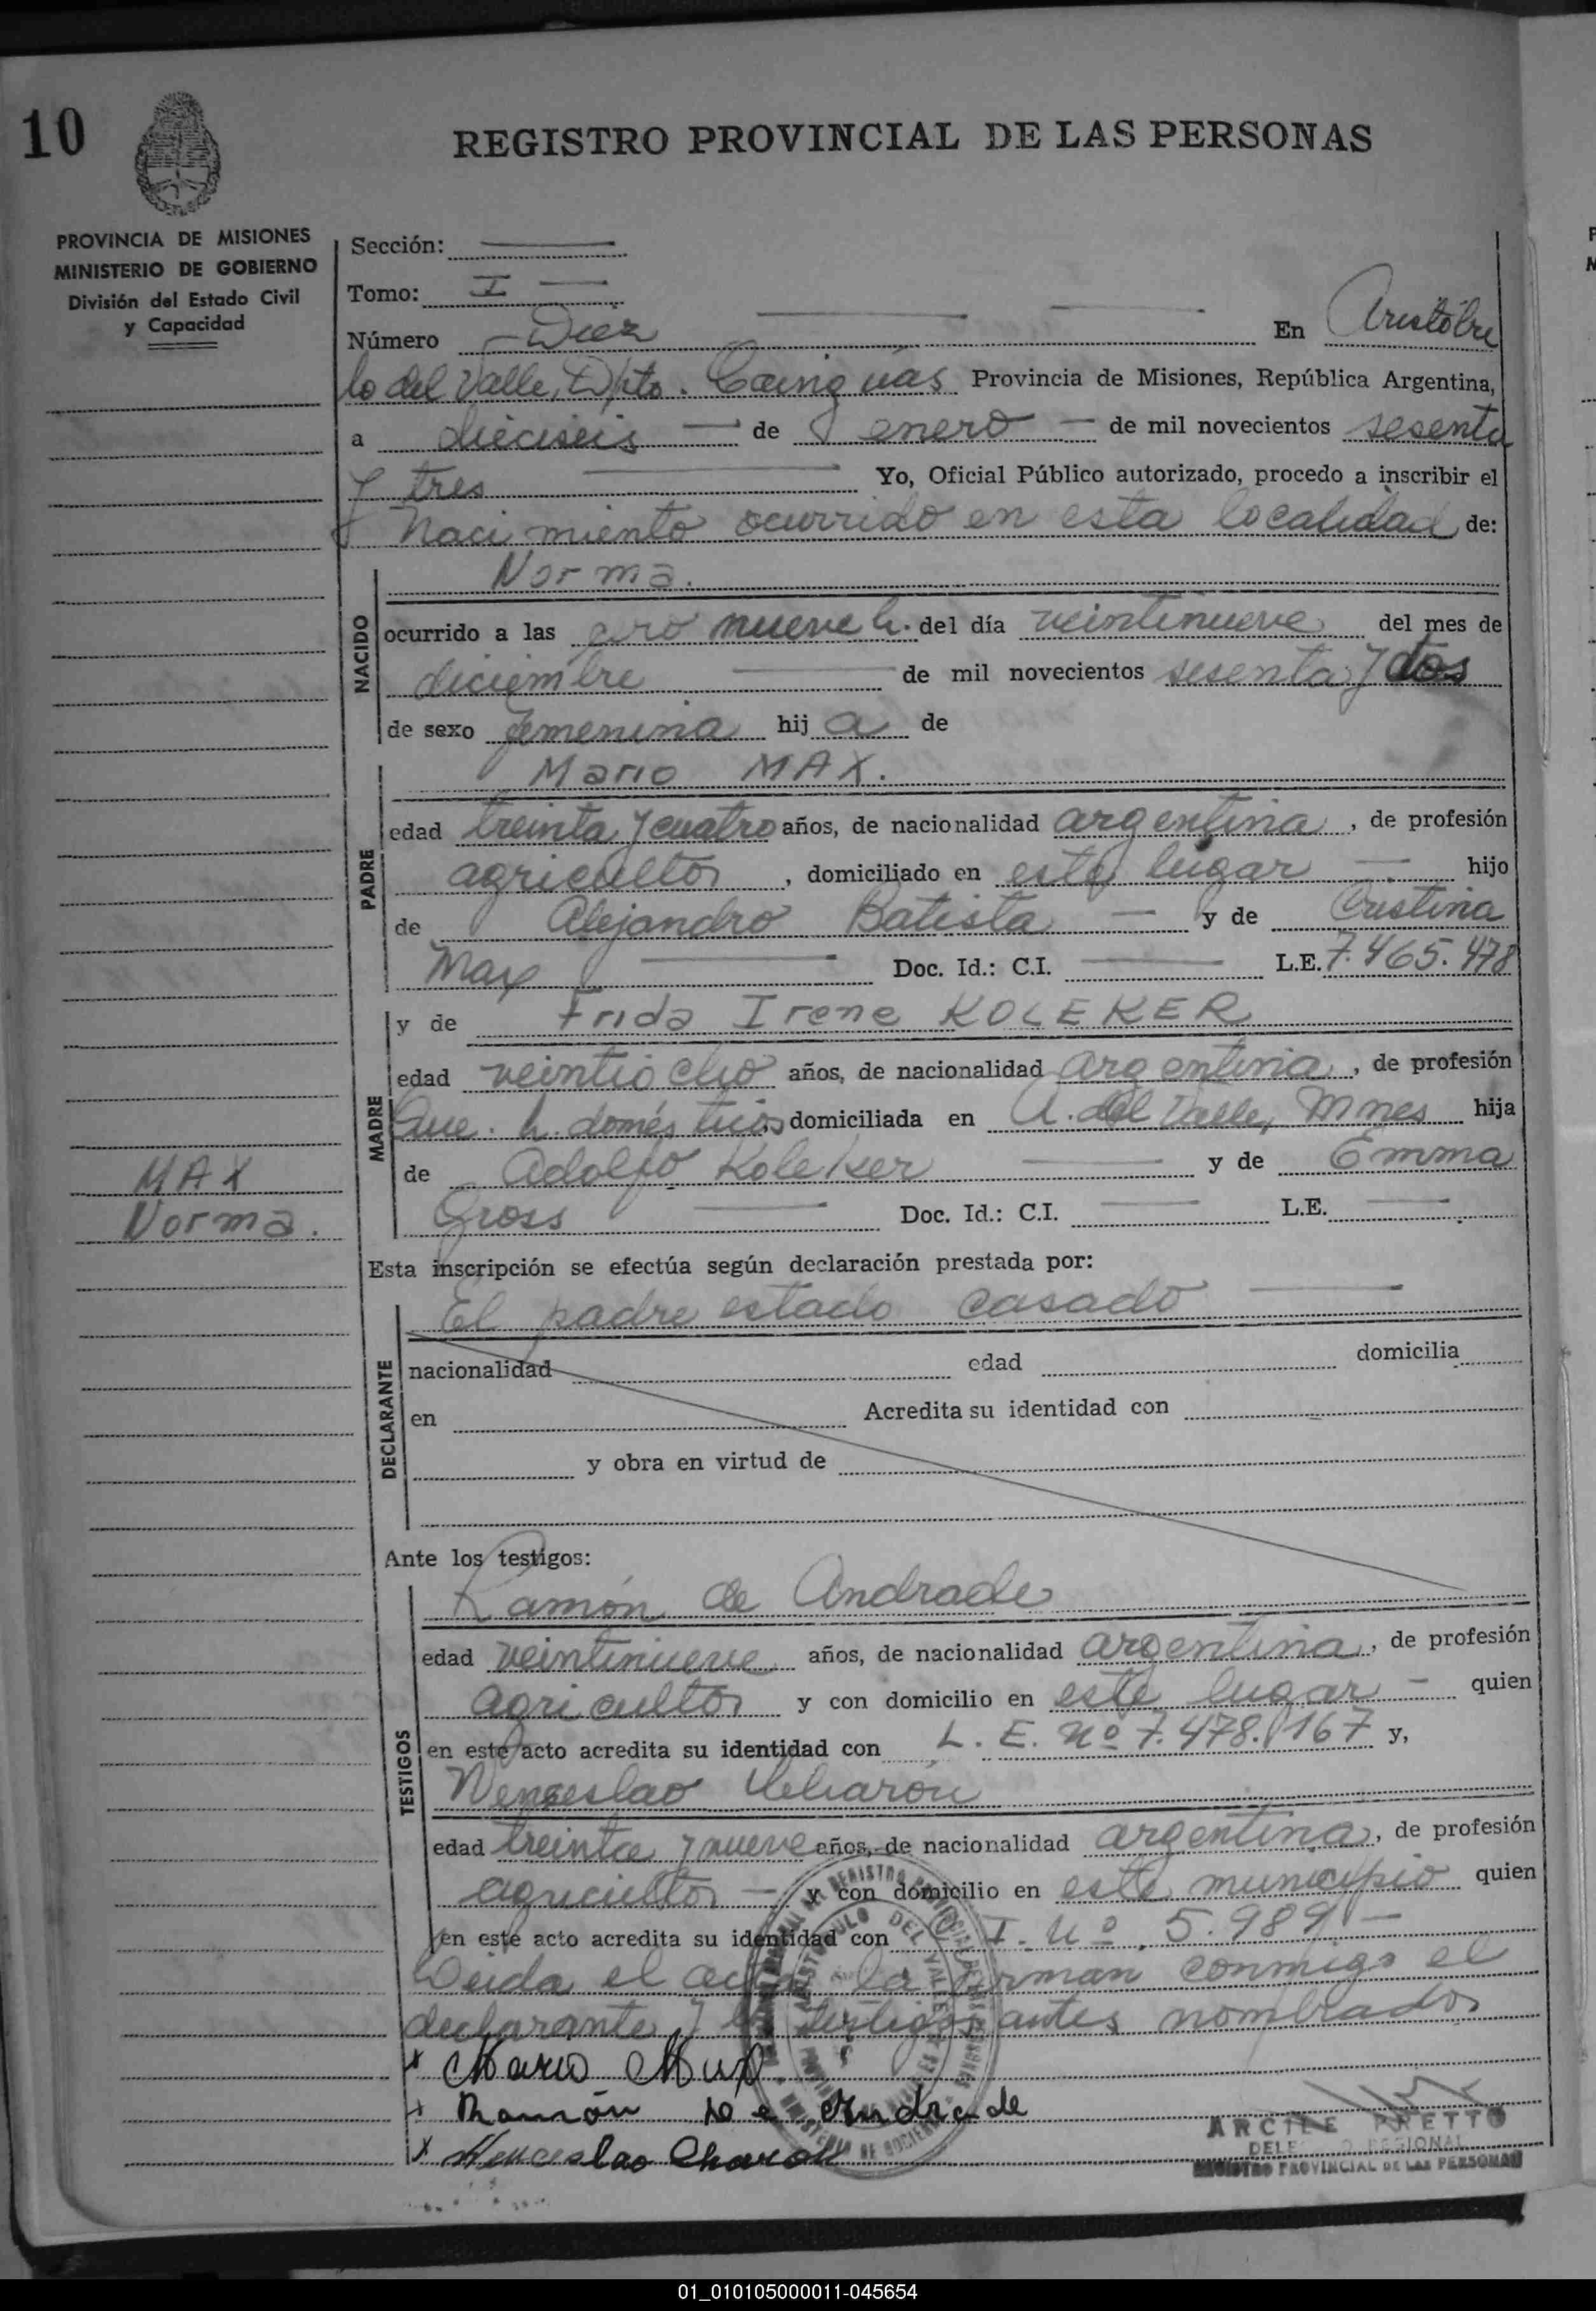 10
REGISTRO PROVINCIAL DE LAS PERSONAS
PROVINCIA DE MISIONES
MINISTERIO DE GOBIERNO
División del Estado Civil
y Capacidad
Sección:
Tomo: I
Número Diez En Aristóbu
lo del Valle, Dpto. Cainguás Provincia de Misiones, República Argentina,
a dieciseis de enero de mil novecientos sesenta
y tres Yo, Oficial Público autorizado, procedo a inscribir el
Nacimiento ocurrido en esta localidad de:
NACIDO
Norma.
ocurrido a las nueve h. del día veintinueve del mes de
diciembre de mil novecientos sesenta y dos
de sexo femenina hija de
PADRE
Mario MAX.
edad treinta y cuatro años, de nacionalidad argentina, de profesión
agricultor, domiciliado en este lugar hijo
de Alejandro Batista y de Cristina
Max Doc. Id.: C.I. L.E. 7.465.478
MADRE
y de Frida Irene KOLEKER
edad veintiocho años, de nacionalidad argentina, de profesión
Que. h. domésticos domiciliada en A. del Valle, Mnes hija
de Adolfo Koleker y de Emma
Gross Doc. Id.: C.I. L.E.
MAX
Norma.
Esta inscripción se efectúa según declaración prestada por:
DECLARANTE
El padre estado casado
nacionalidad edad domicilia
en Acredita su identidad con
y obra en virtud de
Ante los testigos:
TESTIGOS
Ramón de Andrade
edad veintinueve años, de nacionalidad argentina, de profesión
agricultor y con domicilio en este lugar quien
en este acto acredita su identidad con L. E. Nº 7.478.167 y,
Wenseslao
edad treinta y nueve años, de nacionalidad argentina, de profesión
agricultor y con domicilio en este municipio quien
en este acto acredita su identidad con C.I. Nº 5.989
Leida el acta la firman conmigo el
declarante y los testigos antes nombrados
x Mario Max
x Ramón de Andrade
x Wenceslao Charon
ARCILE PRETTO
DELEGADO REGIONAL
REGISTRO PROVINCIAL DE LAS PERSONAS
01_010105000011-045654